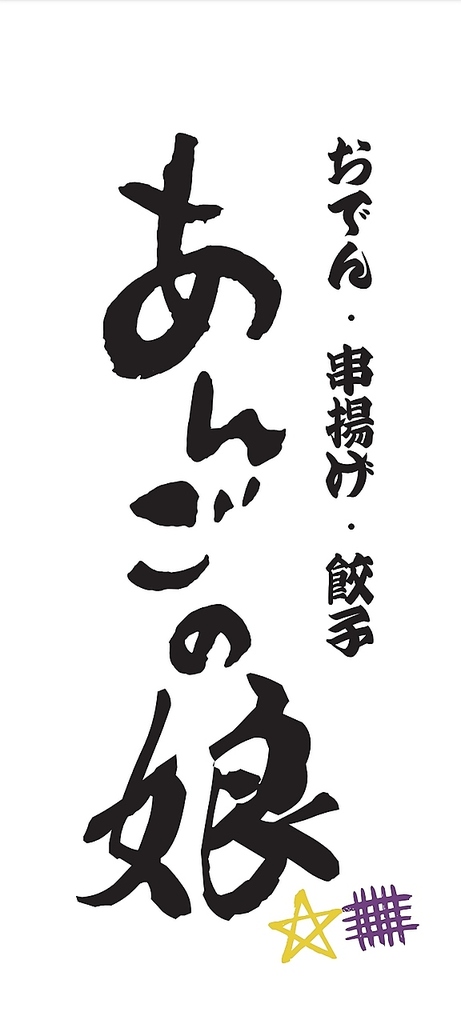 おでん・串揚げ・餃子
あんごの娘